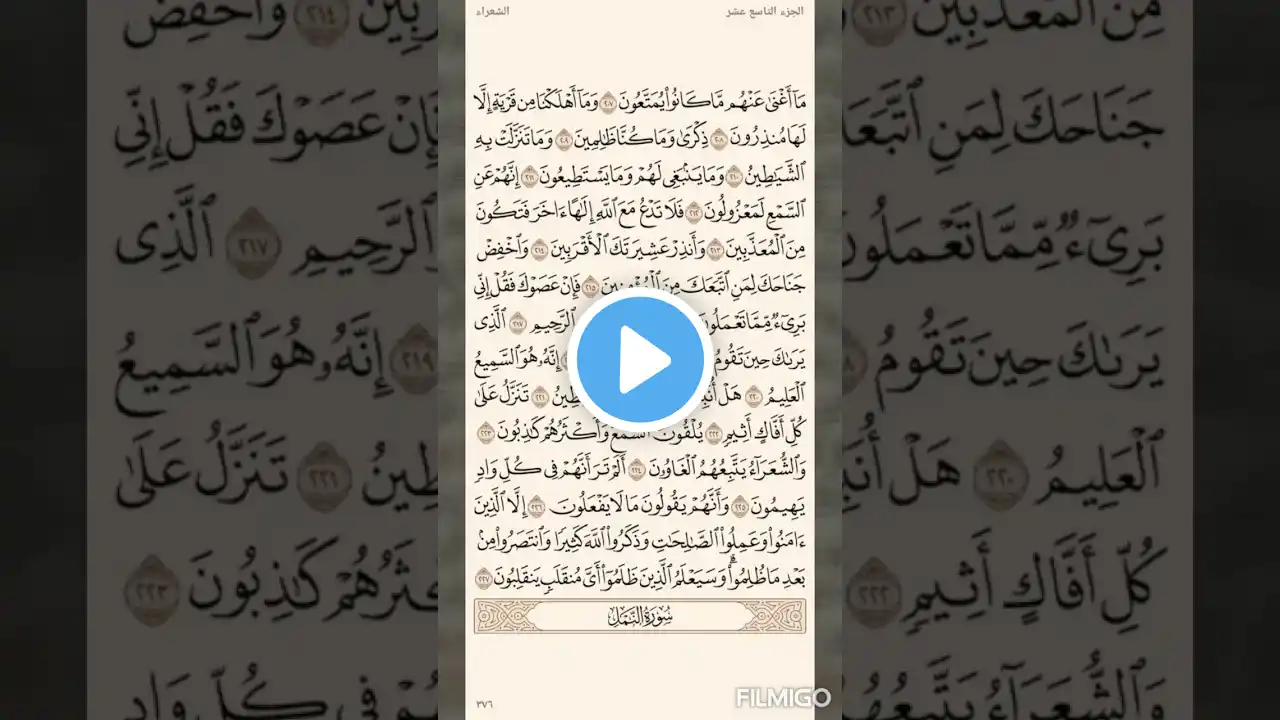 الجزء التاسع عشر
الشعراء
مَآ أَغْنَىٰ عَنْهُم مَّا كَانُوا۟ يُمَتَّعُونَ ٢٠٧ وَمَآ أَهْلَكْنَا مِن قَرْيَةٍ إِلَّا
لَهَا مُنذِرُونَ ٢٠٨ ذِكْرَىٰ وَمَا كُنَّا ظَٰلِمِينَ ٢٠٩ وَمَا تَنَزَّلَتْ بِهِ
ٱلشَّيَٰطِينُ ٢١٠ وَمَا يَنۢبَغِى لَهُمْ وَمَا يَسْتَطِيعُونَ ٢١١ إِنَّهُمْ عَنِ
ٱلسَّمْعِ لَمَعْزُولُونَ ٢١٢ فَلَا تَدْعُ مَعَ ٱللَّهِ إِلَٰهًا ءَاخَرَ فَتَكُونَ
مِنَ ٱلْمُعَذَّبِينَ ٢١٣ وَأَنذِرْ عَشِيرَتَكَ ٱلْأَقْرَبِينَ ٢١٤ وَٱخْفِضْ
جَنَاحَكَ لِمَنِ ٱتَّبَعَكَ مِنَ ٱلْمُؤْمِنِينَ ٢١٥ فَإِنْ عَصَوْكَ فَقُلْ إِنِّى
بَرِىٓءٌ مِّمَّا تَعْمَلُونَ ٱلرَّحِيمِ ٢١٧ ٱلَّذِى
يَرَىٰكَ حِينَ تَقُومُ إِنَّهُۥ هُوَ ٱلسَّمِيعُ
ٱلْعَلِيمُ ٢٢٠ هَلْ ٢٢١ تَنَزَّلُ عَلَىٰ
كُلِّ أَفَّاكٍ أَثِيمٍ ٢٢٢ يُلْقُونَ ٱلسَّمْعَ وَأَكْثَرُهُمْ كَٰذِبُونَ ٢٢٣
وَٱلشُّعَرَآءُ يَتَّبِعُهُمُ ٱلْغَاوُۥنَ ٢٢٤ أَلَمْ تَرَ أَنَّهُمْ فِى كُلِّ وَادٍ
يَهِيمُونَ ٢٢٥ وَأَنَّهُمْ يَقُولُونَ مَا لَا يَفْعَلُونَ ٢٢٦ إِلَّا ٱلَّذِينَ
ءَامَنُوا۟ وَعَمِلُوا۟ ٱلصَّٰلِحَٰتِ وَذَكَرُوا۟ ٱللَّهَ كَثِيرًا وَٱنتَصَرُوا۟ مِنۢ
بَعْدِ مَا ظُلِمُوا۟ۗ وَسَيَعْلَمُ ٱلَّذِينَ ظَلَمُوٓا۟ أَىَّ مُنقَلَبٍ يَنقَلِبُونَ ٢٢٧
سُورَةُ النَّمْلِ
٣٧٦
FILMIGO